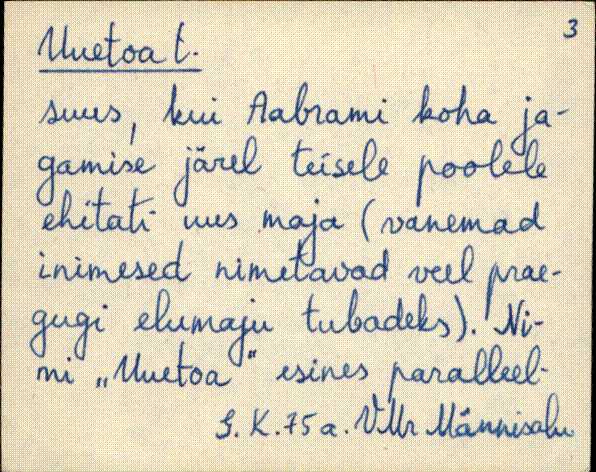 3
Uuetoa t.
suus, kui Aabrami koha ja-
gamise järel teisele poolele
ehitati uus maja (vanemad
inimesed nimetavad veel prae-
gugi elumaju tubadeks). Ni-
mi „Uuetoa" esines paralleel-
S. K. 75 a. VMr Männisalu